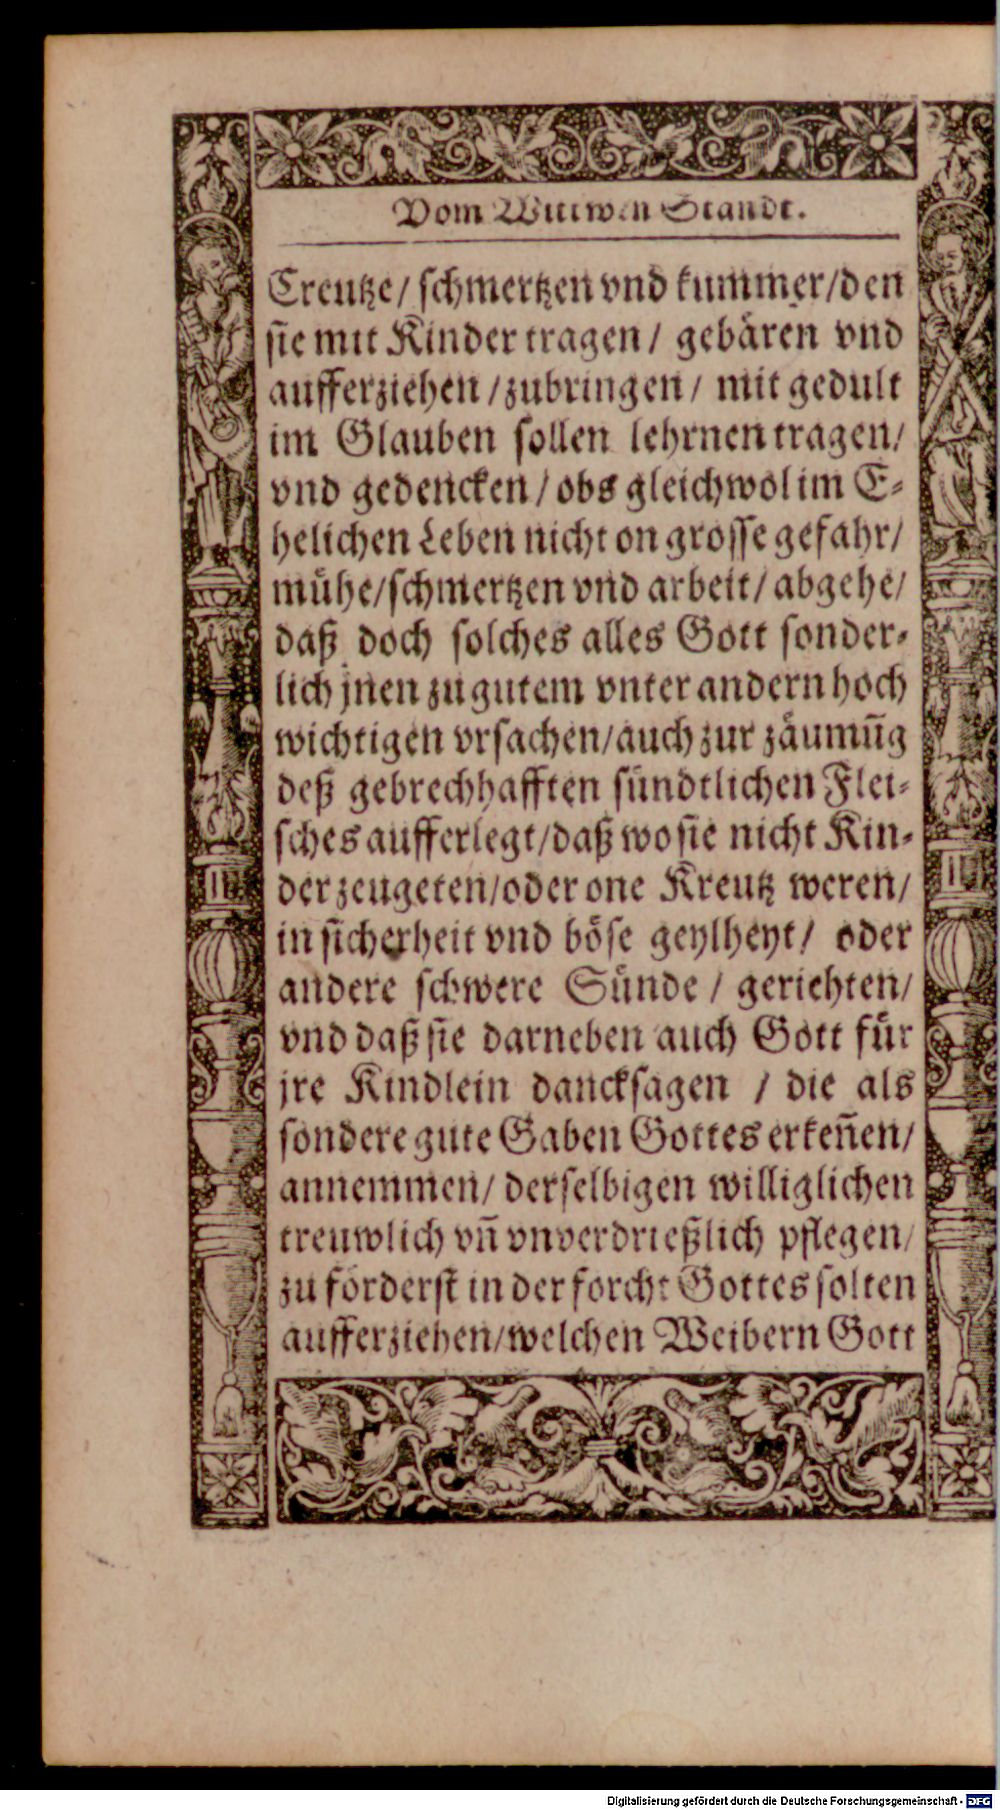 Vom Wittwen Standt.
Creutze / schmertzen vnd kummer / den
sie mit Kinder tragen / gebären vnd
aufferziehen / zubringen / mit gedult
im Glauben sollen lehrnen tragen /
vnd gedencken / obs gleichwol im E-
helichen Leben nicht on grosse gefahr /
mühe / schmertzen vnd arbeit / abgehe /
daß doch solches alles Gott sonder-
lich jnen zu gutem vnter andern hoch
wichtigen vrsachen / auch zur zäumūg
deß gebrechhafften sündtlichen Flei-
sches aufferlegt / daß wo sie nicht Kin-
der zeugeten / oder one Kreutz weren /
in sicherheit vnd böse geylheyt / oder
andere schwere Sünde / geriehten /
vnd daß sie darneben auch Gott für
jre Kindlein dancksagen / die als
sondere gute Gaben Gottes erkeñen /
annemmen / derselbigen williglichen
treuwlich vñ vnverdrießlich pflegen /
zu förderst in der forcht Gottes solten
aufferziehen / welchen Weibern Gott
Digitalisierung gefördert durch die Deutsche Forschungsgemeinschaft - DFG